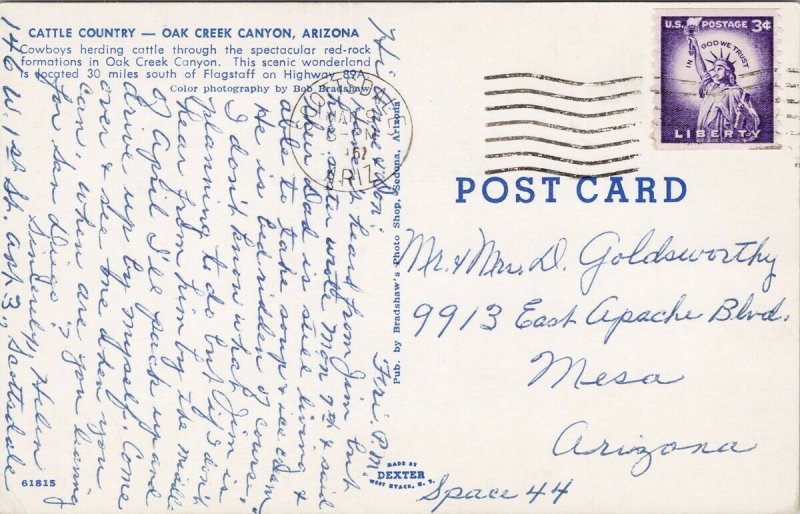 CATTLE COUNTRY — OAK CREEK CANYON, ARIZONA
Cowboys herding cattle through the spectacular red-rock
formations in Oak Creek Canyon. This scenic wonderland
is located 30 miles south of Flagstaff on Highway 89A.
Color photography by Bob Bradshaw
U.S. POSTAGE 3¢
IN GOD WE TRUST
LIBERTY
SCOTTSDALE
ARIZ.
POST CARD
Mr. & Mrs. D. Goldsworthy
9913 East Apache Blvd.
Mesa
Arizona
Space 44
Pub. by Bradshaw's Photo Shop, Sedona, Arizona
MADE BY
DEXTER
WEST NYACK, N. Y.
61815
Fri. P.M.
Hi Don:
heard from Jim but
sister wrote Mon 9th & said
Dad is still living &
able to take soup & ice cream
He is bedridden of course.
I don't know what Jim is
planning to do but if I don't
hear from him by the middle
of April I'll pack up and
drive up by myself. Come
over & see me when you
can. When are you leaving
for San Diego?
Sincerely, Helen
146 W. 1st St. Apt 3, Scottsdale